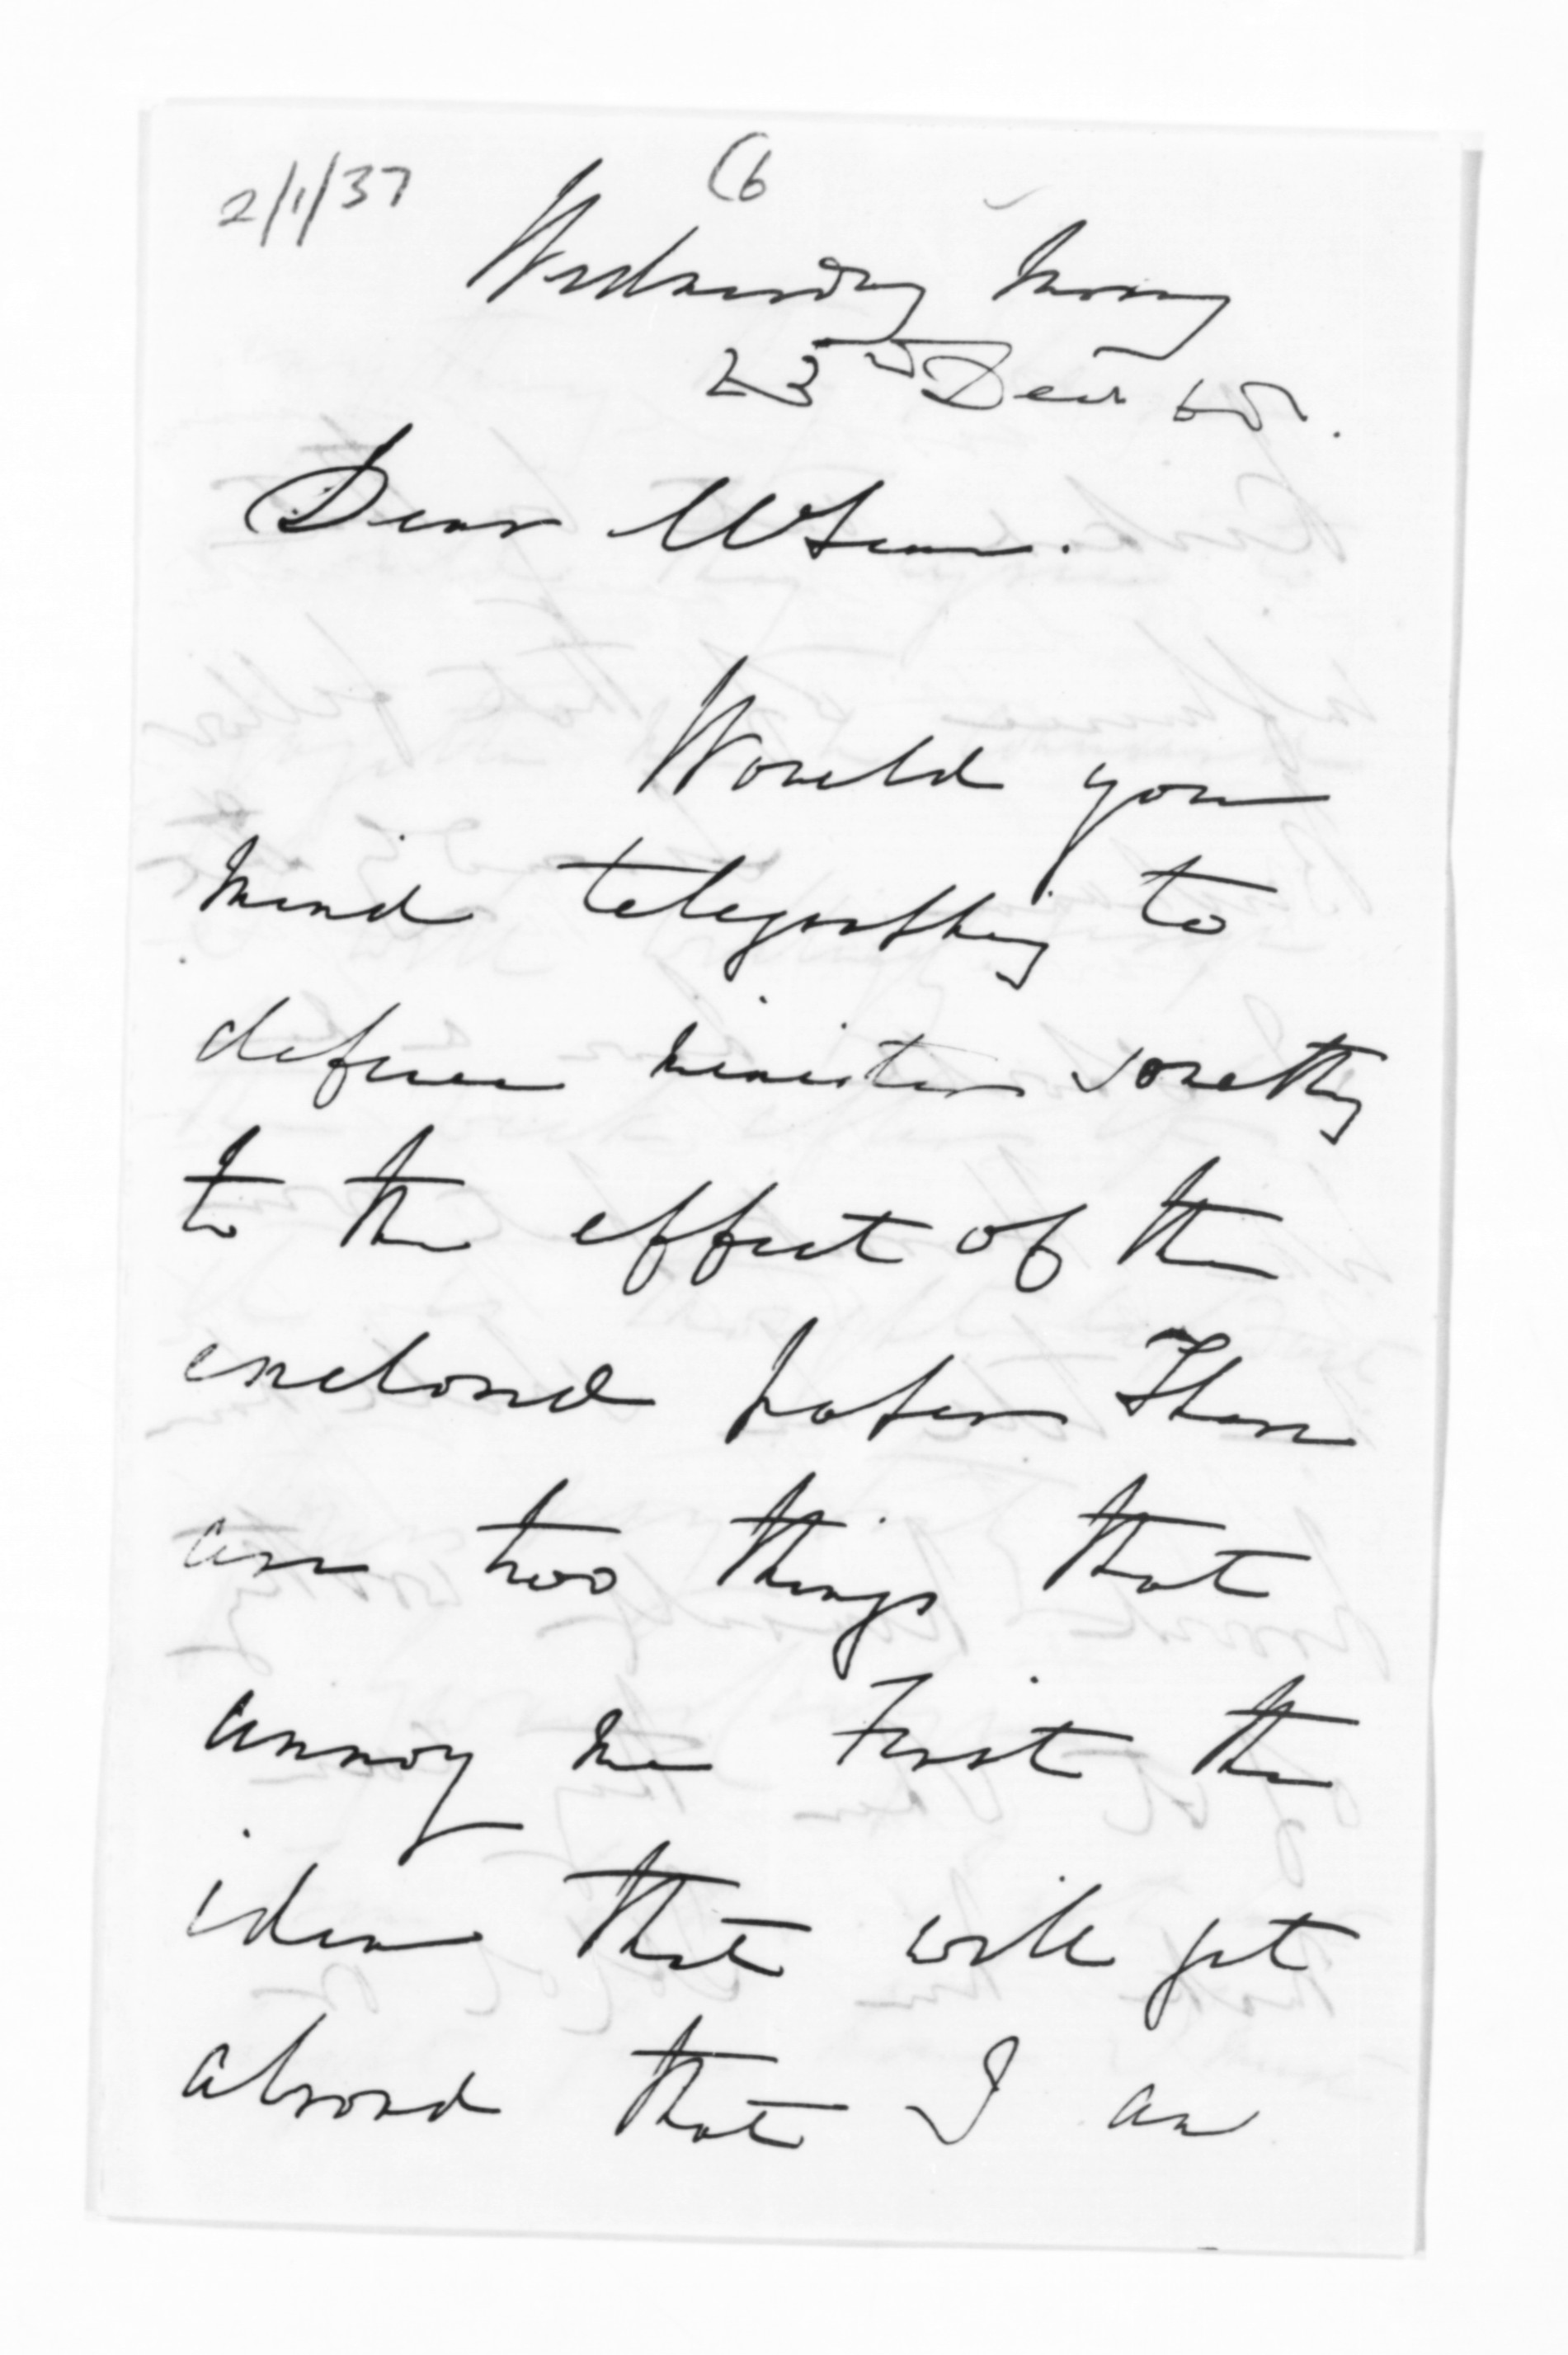 2/1/37
C6
Wednesday Morng
23rd Decr 68.
Dear McLean.
Would you
mind telegraphing to
defence minister somethg
to the effect of the
enclosed paper There
are two things that
annoy me First the
idea that will get
abroad that I am